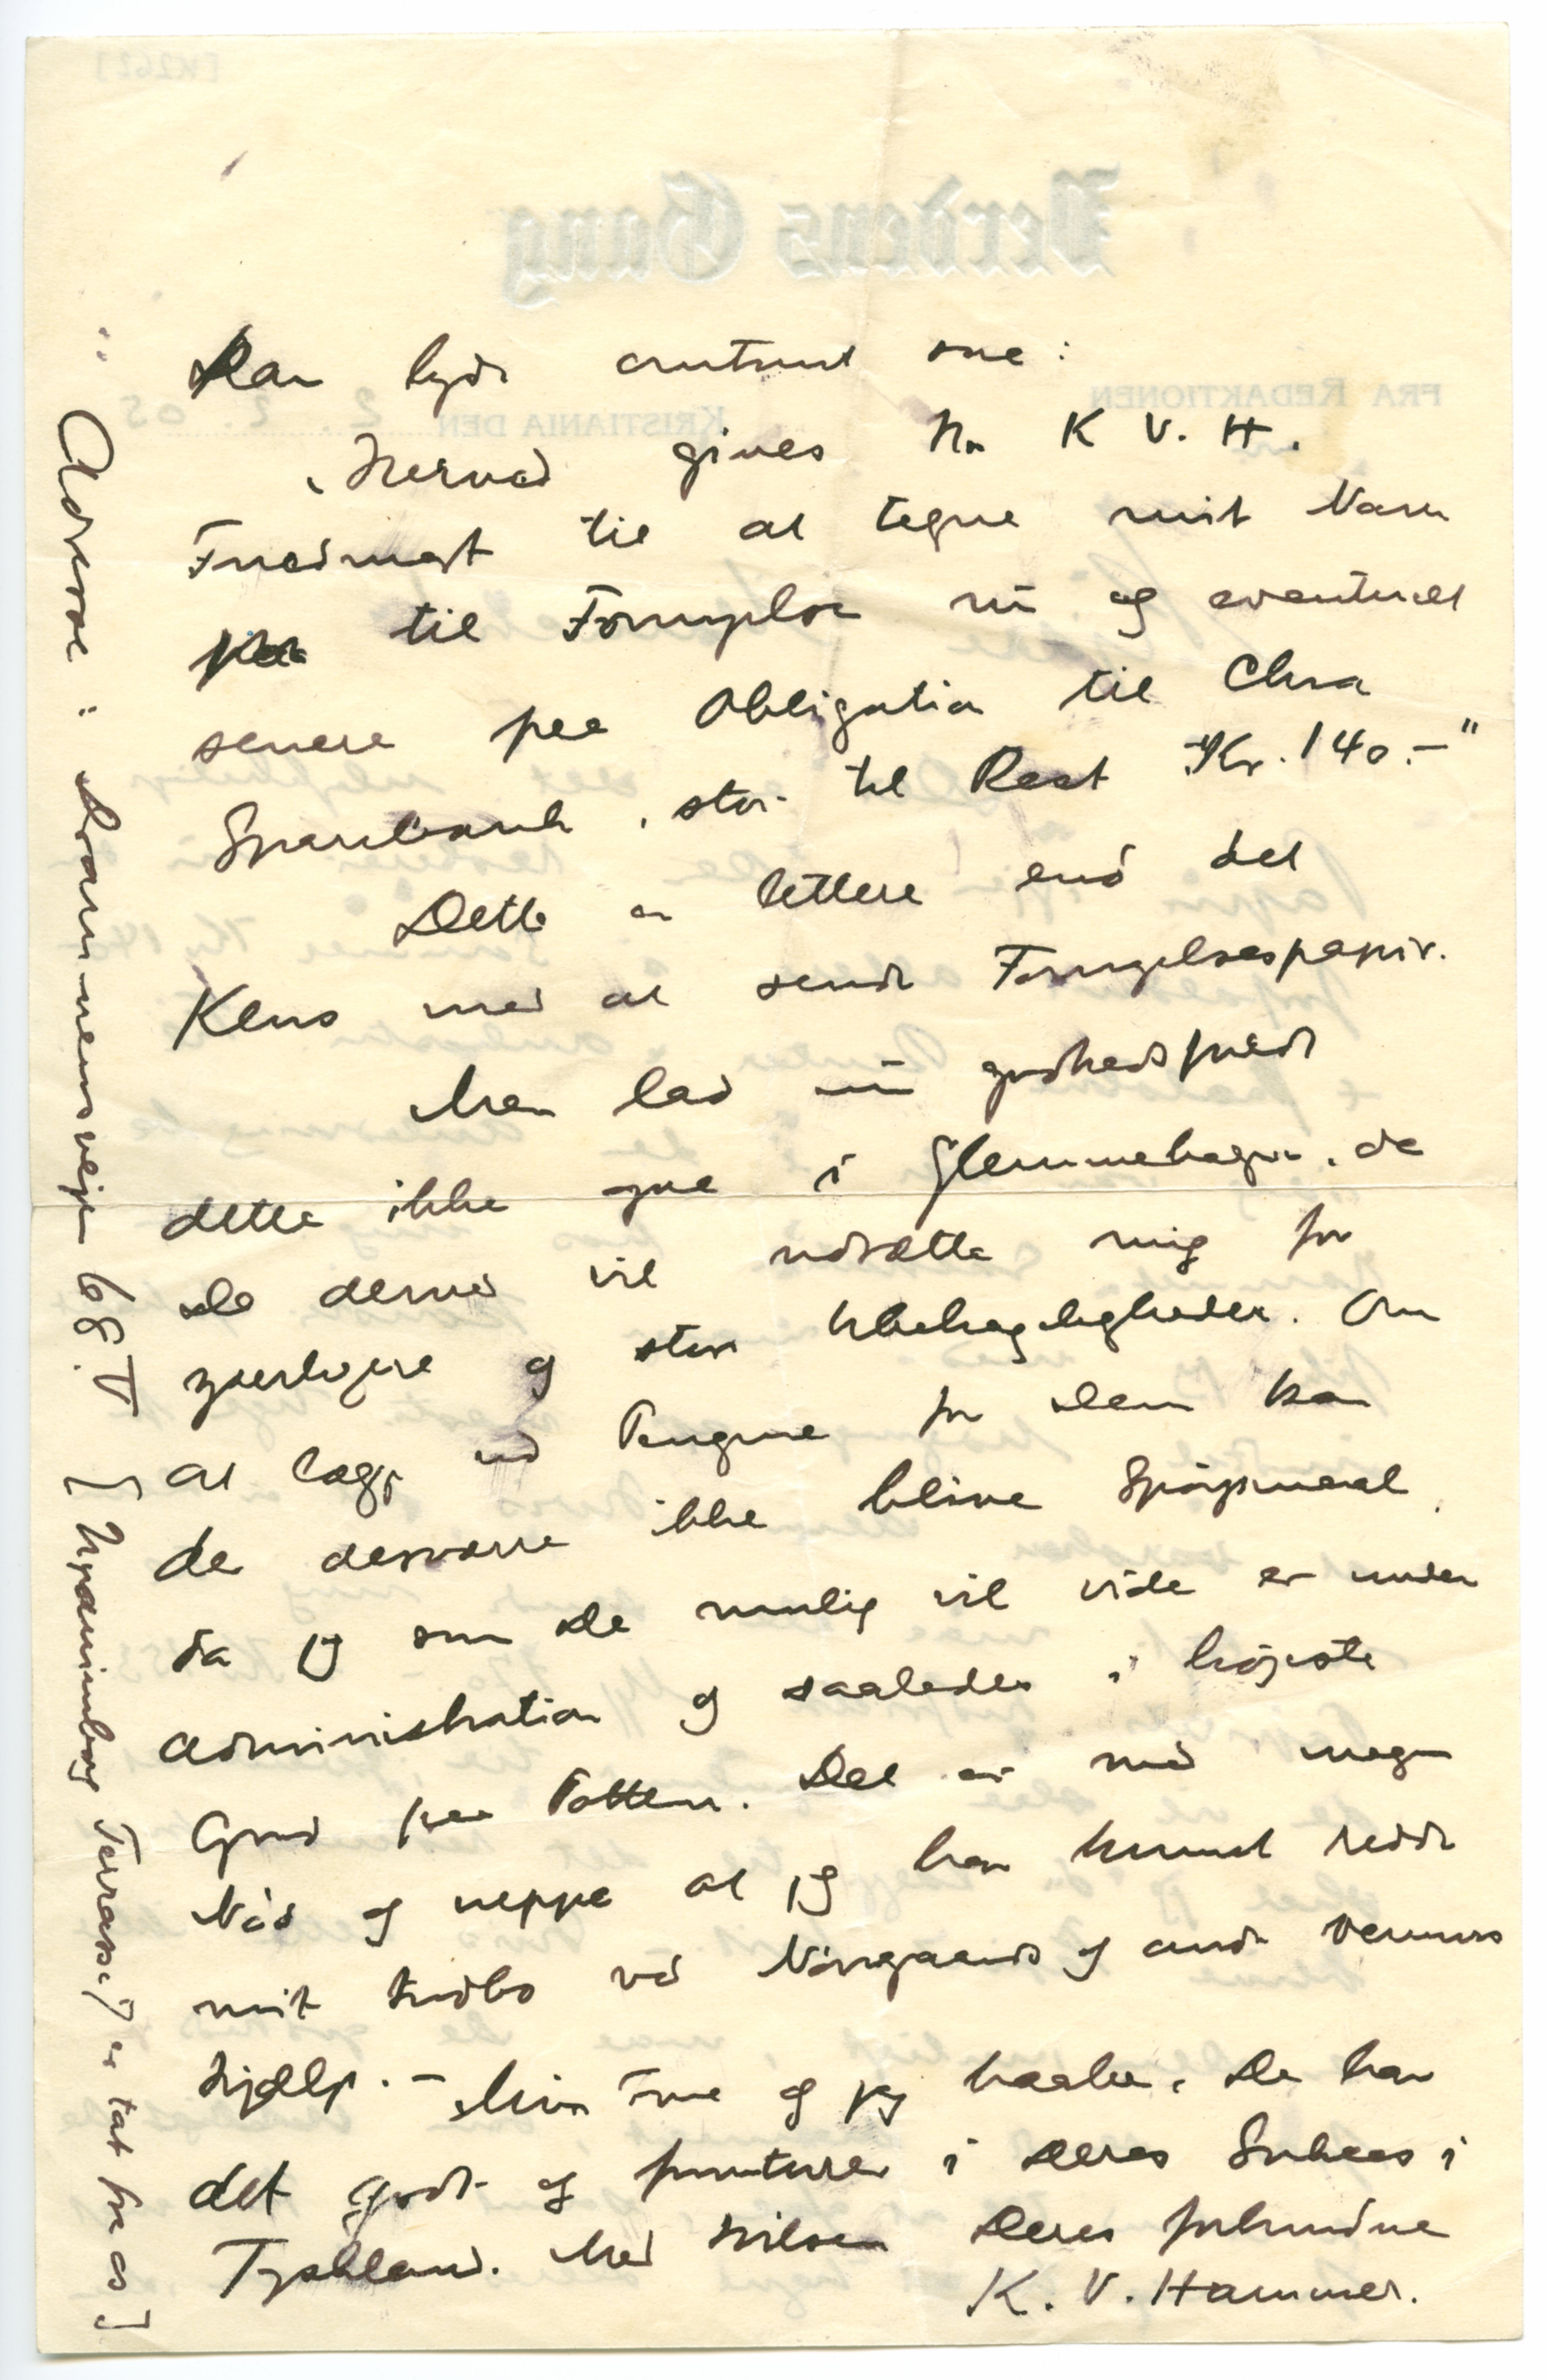 kan lyde omtrent saa:
"Herved gives Hr. K V. H.
Fuldmagt til at tegne mit Navn
til Fornyelse nu og eventuelt
senere paa Obligation til Chra
Sparebank, stor til Rest Kr. 140.–"
Dette er lettere end det
Kluss med at sende Fornyelsespapir.
Men lad nu godhedsfuldt
dette ikke gaa i Glemmebogen, da
De derved vil udsætte mig for
og store Ubehageligheder. Om
at lægge ud Pengene for Dem kan
der desværre ikke blive Spørgsmaal,
da jeg som De mulig vil vide er under
administration og saaledes i højeste
Grad paa Potten. Det er med megen
Nød og neppe at jeg har kunnet redde
mit Indbo ved Nørregaards og andre Venners
Hjælp. – Min Frue og jeg haaber, De har
det godt og i Deres Sukces i
Tyskland. Med Hilsen Deres forbundne
K. V. Hammer.
Adresse: Drammensvejen 68.I
[Uranienborg Terrasse 7 er tat fra os]
Verdens Gang
FRA REDAKTIONEN
KRISTIANIA DEN 2. 2. 05